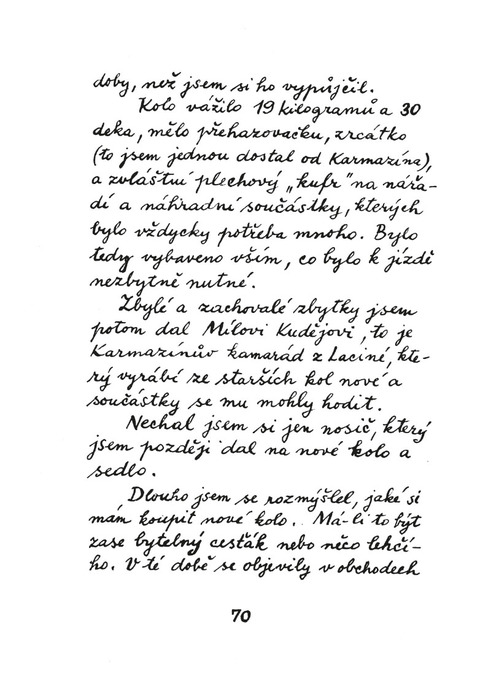 doby, než jsem si ho vypůjčil.
Kolo vážilo 19 kilogramů a 30
deka, mělo přehazovačku, zrcátko
(to jsem jednou dostal od Karmazína),
a zvláštní plechový „kufr" na nářa-
dí a náhradní součástky, kterých
bylo vždycky potřeba mnoho. Bylo
tedy vybaveno vším, co bylo k jízdě
nezbytně nutné.
Zbylé a zachovalé zbytky jsem
potom dal Milovi Kudějovi, to je
Karmazínův kamarád z Laciné, kte-
rý vyrábí ze starších kol nové a
součástky se mu mohly hodit.
Nechal jsem si jen nosič, který
jsem později dal na nové kolo a
sedlo.
Dlouho jsem se rozmýšlel, jaké si
mám koupit nové kolo. Má-li to být
zase bytelný cesťák nebo něco lehčí-
ho. V té době se objevily v obchodech
70